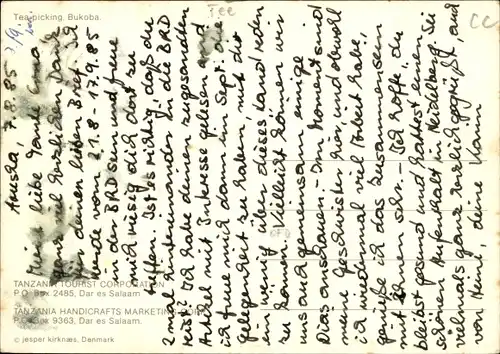 Tea-picking, Bukoba.
Arusha, 7.8.85
Meine liebe Tante Erma,
ganz viel herzlichen Dank
für deinen lieben Brief. Ich
werde vom 21.8 - 17.9.85
in der BRD sein und freue
mich riesig dich dort zu
treffen. Ist es richtig, daß du
2 mal hintereinander in die BRD
reist? Ich habe deinen zugesandten
Artikel mit Interesse gelesen und
ich freue mich dann im Sept. die
Gelegenheit zu haben, mit dir
ein wenig über dieses Land reden
zu können. Vielleicht können wir
uns auch gemeinsam einige
Dias anschauen - Im Moment sind
meine Geschwister hier, und obwohl
ich wiedermal viel Arbeit habe,
genieße ich das Zusammensein
mit ihnen sehr. - Ich hoffe, du
bleibst gesund und hattest einen
schönen Aufenthalt in Heidelberg. Sei
vielmals ganz herzlich gegrüßt und
von deine, deine Karin
TANZANIA TOURIST CORPORATION
P.O. Box 2485, Dar es Salaam.
TANZANIA HANDICRAFTS MARKETING CORP.
P.O. Box 9363, Dar es Salaam.
© jesper kirknæs, Denmark